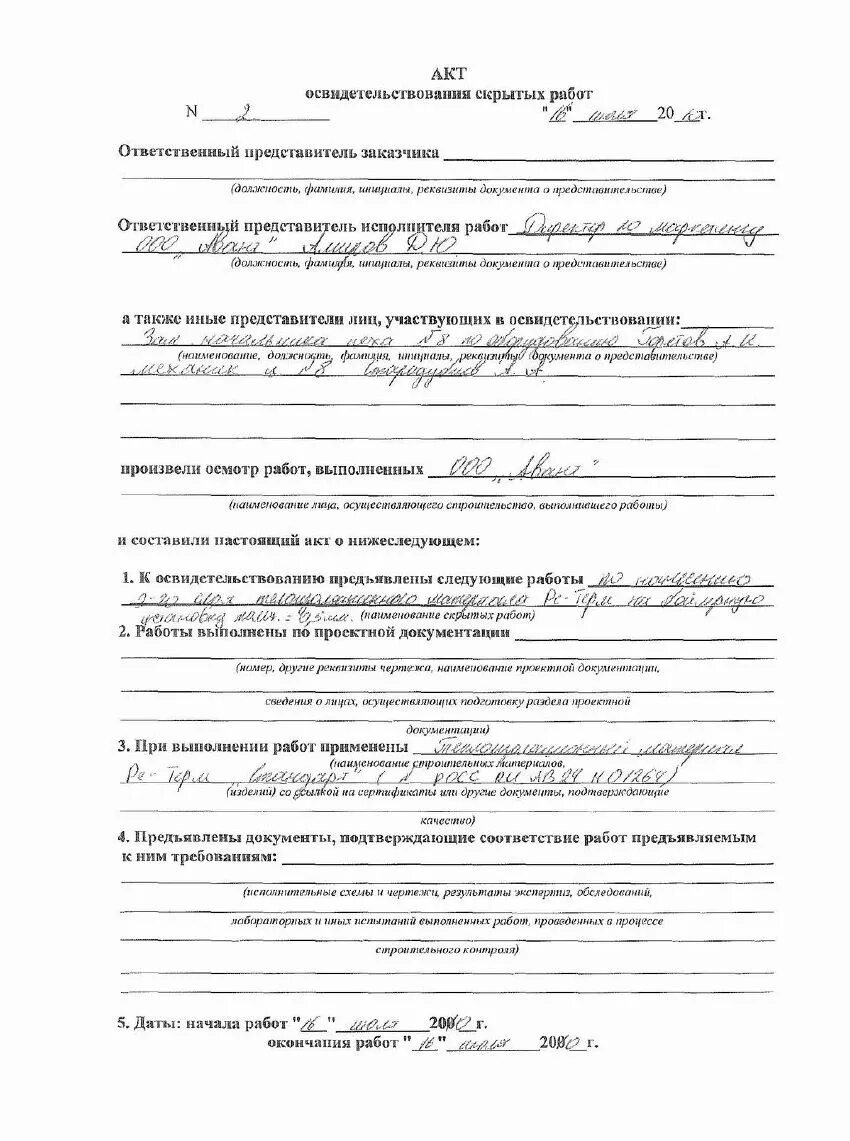 АКТ
освидетельствования скрытых работ
N 2 "16" июля 20 г.
Ответственный представитель заказчика
(должность, фамилия, инициалы, реквизиты документа о представительстве)
Ответственный представитель исполнителя работ Директор по маркетингу
ООО "Авана" Д.Ю
(должность, фамилия, инициалы, реквизиты документа о представительстве)
а также иные представители лиц, участвующих в освидетельствовании:
Зам начальника цеха №8 по оборудованию А.И.
(наименование, должность, фамилия, инициалы, реквизиты документа о представительстве)
механик ц №8 Стародубцев А.А
произвели осмотр работ, выполненных ООО "Авана"
(наименование лица, осуществляющего строительство, выполнившего работы)
и составили настоящий акт о нижеследующем:
1. К освидетельствованию предъявлены следующие работы по нанесению
2-го слоя теплоизоляционного материала Ре-Терм на бойлерную
установку (наименование скрытых работ)
2. Работы выполнены по проектной документации
(номер, другие реквизиты чертежа, наименование проектной документации,
сведения о лицах, осуществляющих подготовку раздела проектной
документации)
3. При выполнении работ применены Теплоизоляционный материал
(наименование строительных материалов,
Ре-Терм "Стандарт" ( РОСС RU АВ 29 Н01264)
(изделий) со ссылкой на сертификаты или другие документы, подтверждающие
качество)
4. Предъявлены документы, подтверждающие соответствие работ предъявляемым
к ним требованиям:
(исполнительные схемы и чертежи, результаты экспертиз, обследований,
лабораторных и иных испытаний выполненных работ, проведенных в процессе
строительного контроля)
5. Даты: начала работ "16" июля 2010 г.
окончания работ "16" июля 2010 г.